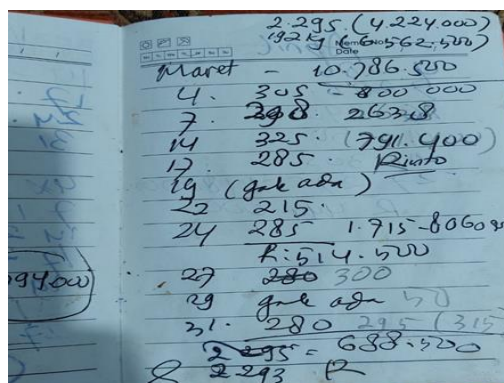 2.295. (4.224.000)
192 kg (6.562.500)
Date
Maret - 10.786.500
4. 305 - 800 000
7. 298. 263.8
14 325. (791.400)
17. 285.
19 (gak ada)
22 215.
24 285 1.715-8060
R: 514.500
27 280 300
29 gak ada 50
31. 280 295 (315
2295 = 688.500
2293 R
94.000